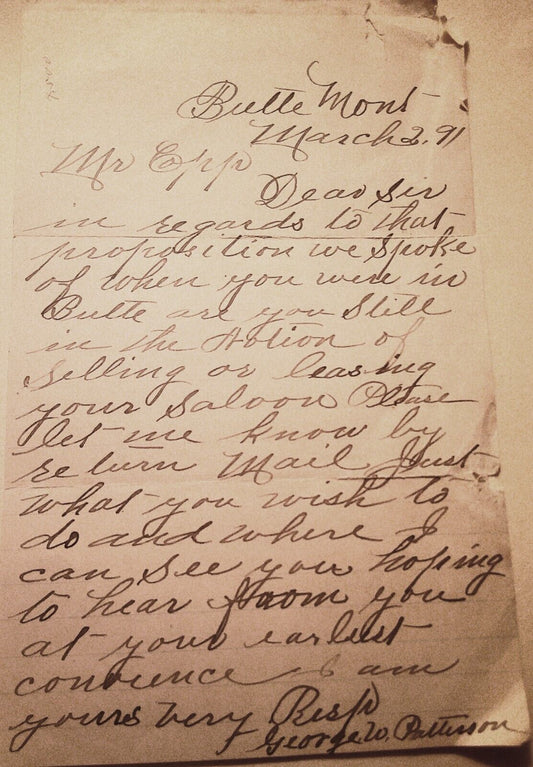 Butte Mont
March 2. 91
Mr Epp
Dear Sir
in regards to that
proposition we spoke
of when you were in
Butte are you Still
in the Notion of
Selling or leasing
your Saloon Please
let me know by
return Mail Just
what you wish to
do and where I
can See you hoping
to hear from you
at your earlest
convience I am
yours very Resp
George W. Patterson